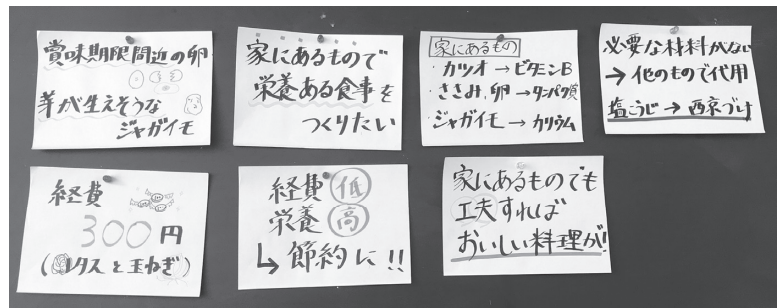 賞味期限間近の卵
芽が生えそうな
ジャガイモ
家にあるもので
栄養ある食事を
つくりたい
家にあるもの
・カツオ→ビタミンB
・ささみ、卵→タンパク質
・ジャガイモ→カリウム
必要な材料がない
→他のもので代用
塩こうじ→西京づけ
経費
300円
(レタスと玉ねぎ)
経費 低
栄養 高
↳節約に!!
家にあるものでも
工夫すれば
おいしい料理が!